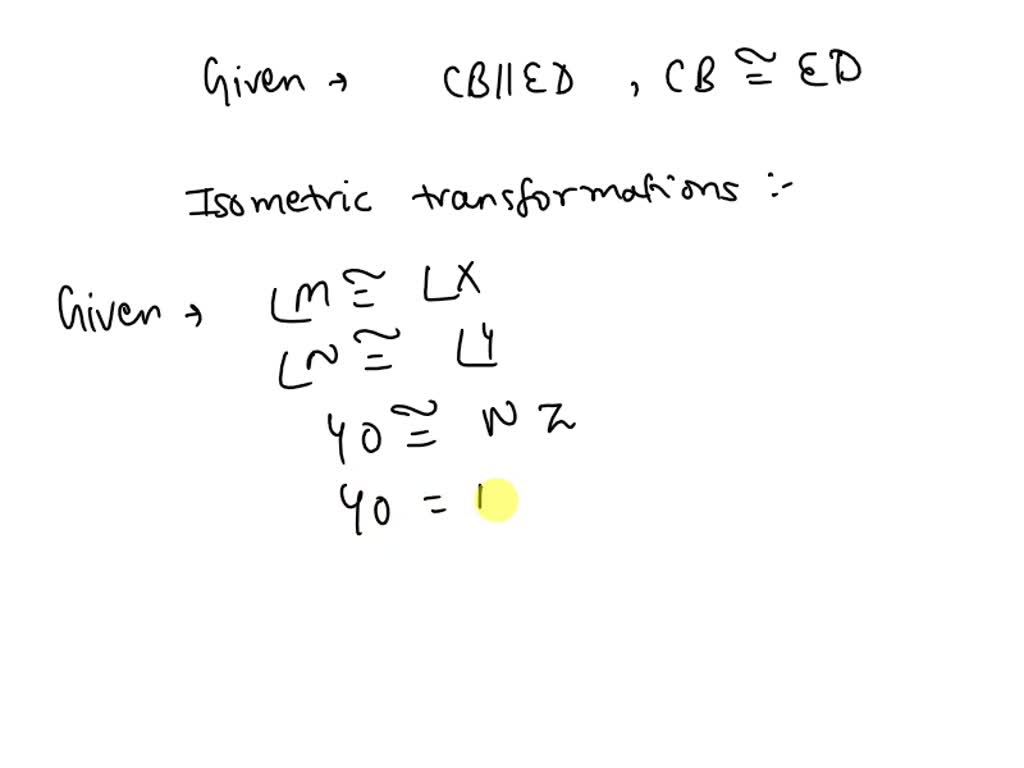 Given → CB||ED , CB ≅ ED
Isometric transformations :-
Given → ∠M ≅ ∠X
∠N ≅ ∠Y
YO ≅ NZ
YO =